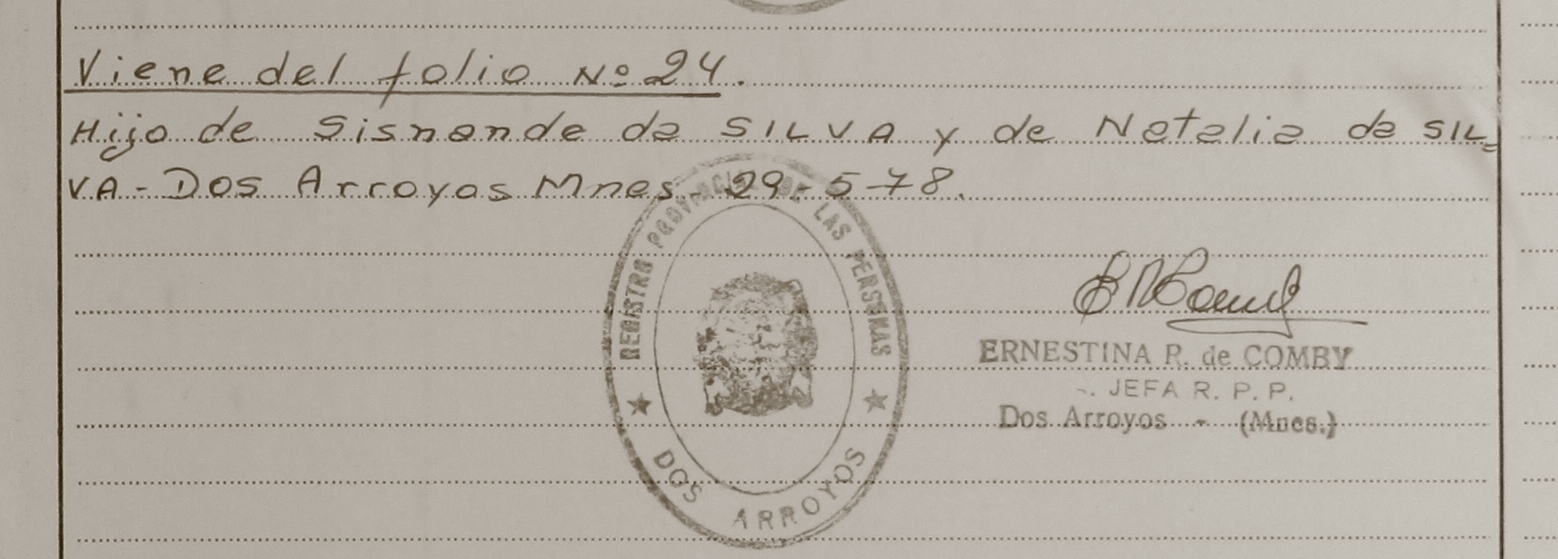 Viene del folio Nº 24.
Hijo de Sisnando da SILVA y de Natalia da SIL-
VA - Dos Arroyos Mnes - 29 - 5 - 78.
REGISTRO PROVINCIAL DE LAS PERSONAS
DOS ARROYOS
ERNESTINA R. de COMBY
-. JEFA R. P. P.
Dos Arroyos - (Mnes.)